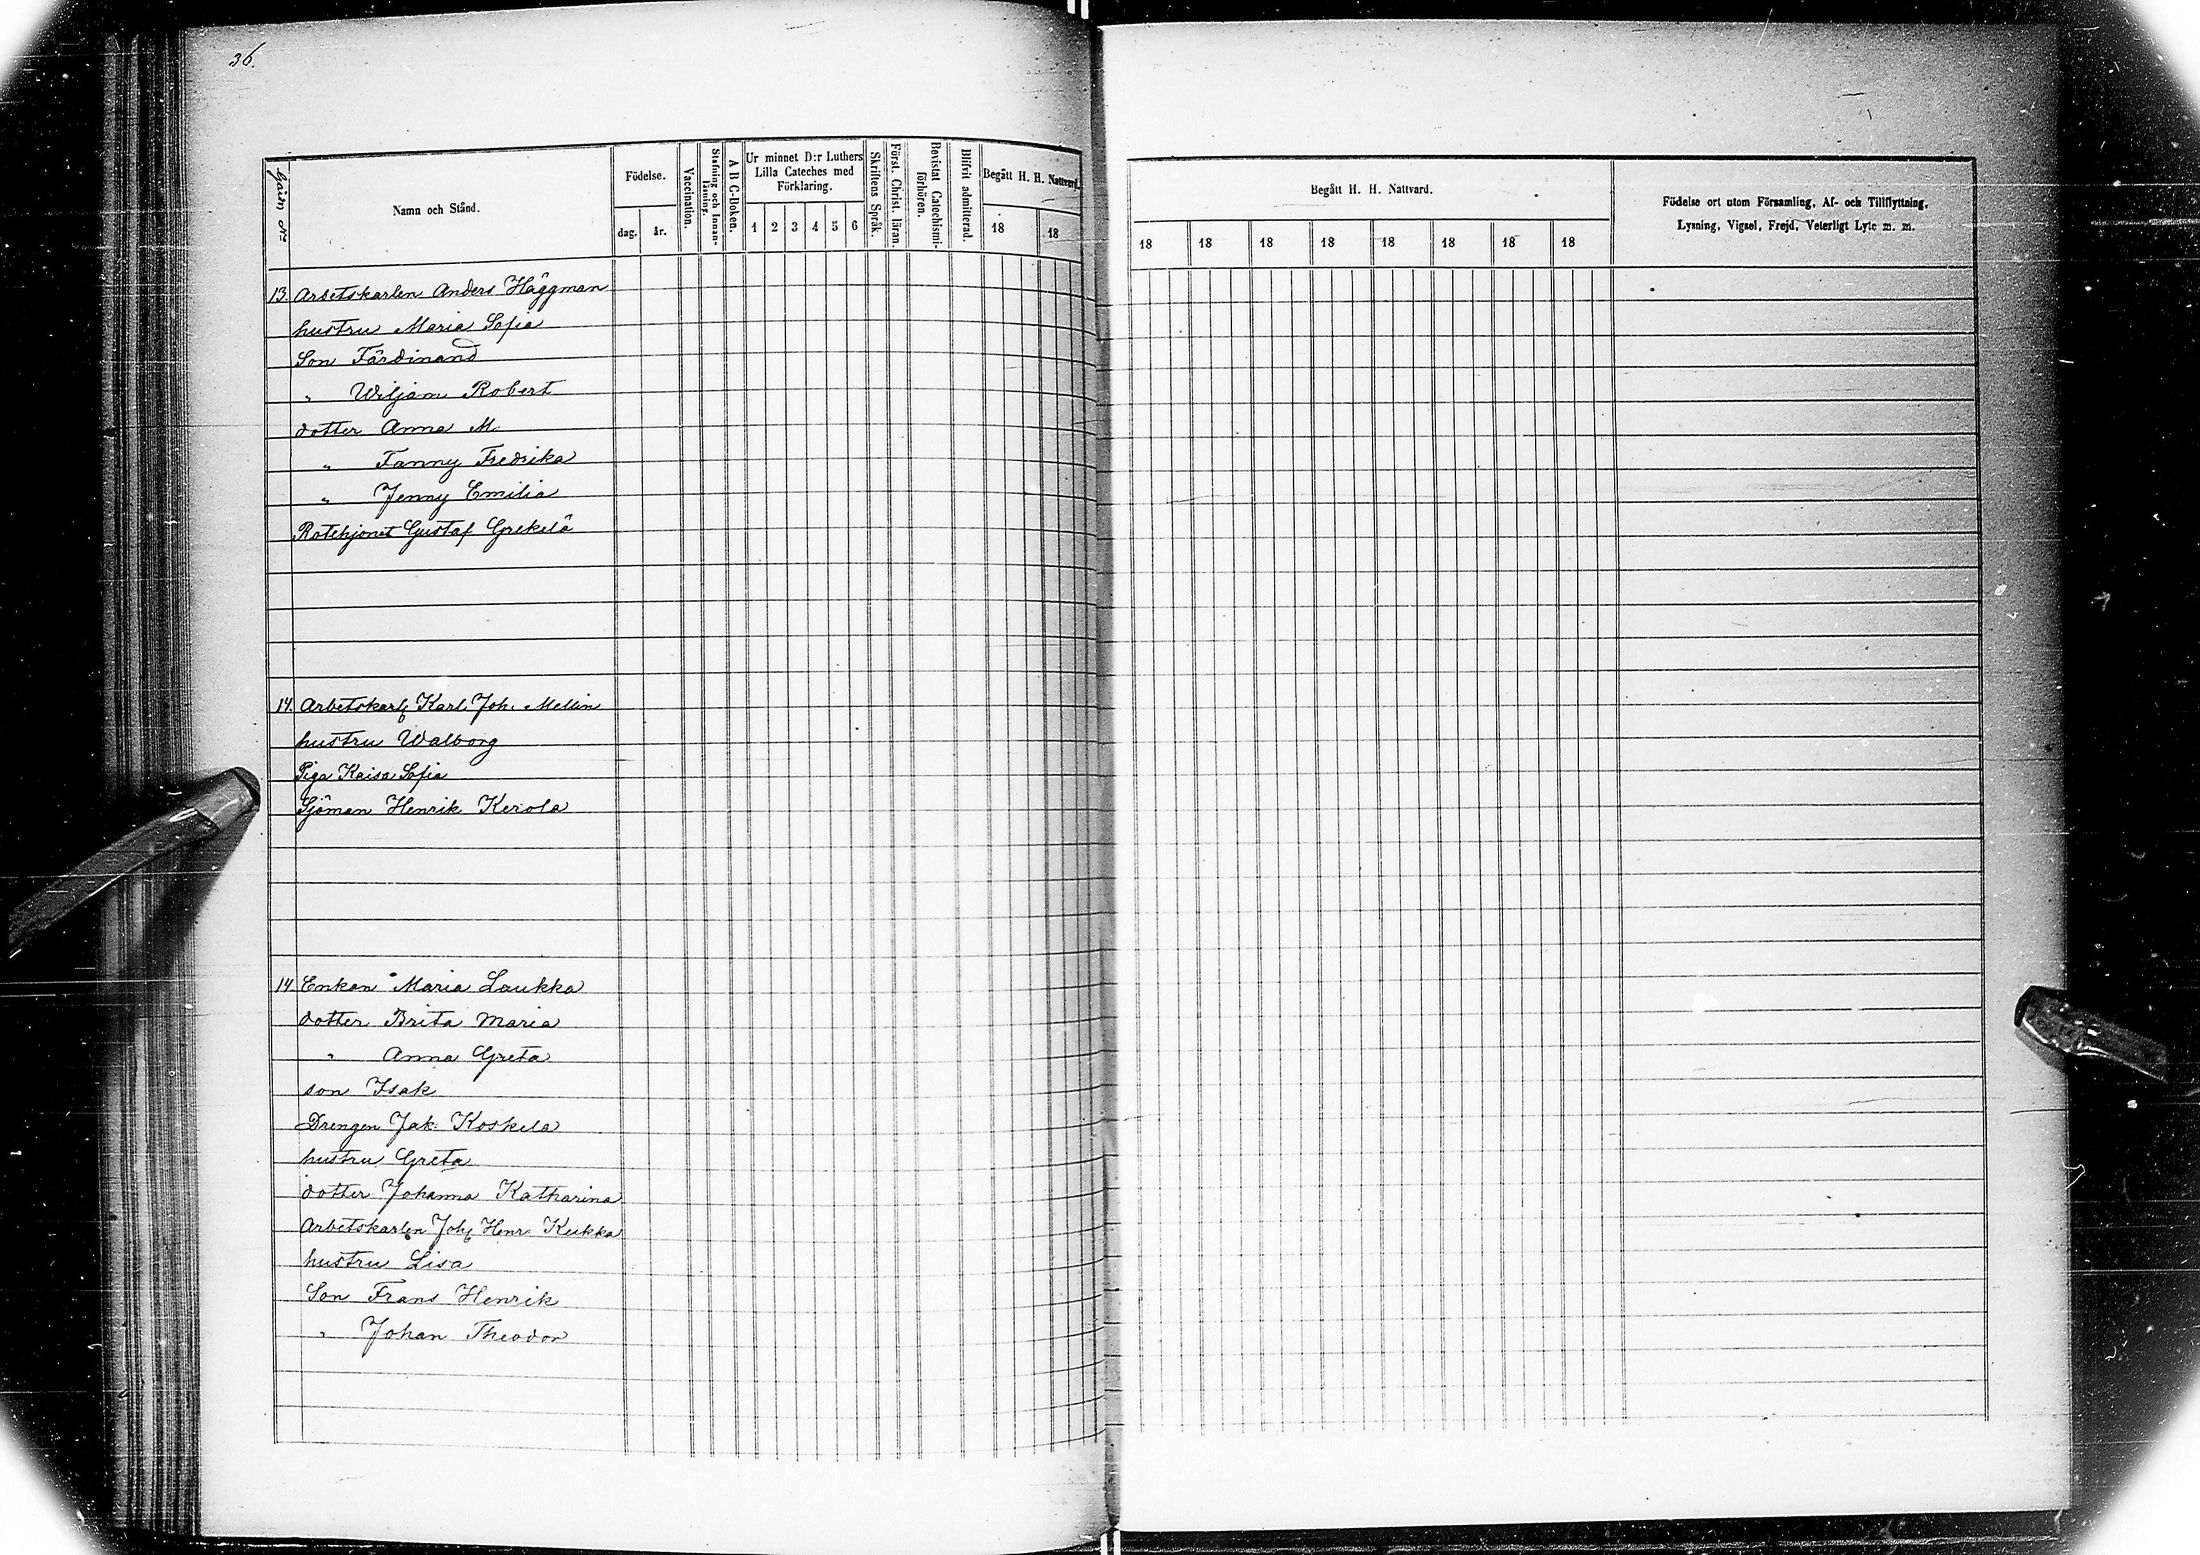 36.
Gårn No
Namn och Stånd.
Födelse.
dag.
år.
Vaccination.
Stafning och Innanläsning.
A B C-Boken.
Ur minnet D:r Luthers
Lilla Cateches med
Förklaring.
1 2 3 4 5 6
Skriftens Språk.
Först. Christ. läran.
Bevistat Catechismi-förhören.
Blifvit admitterad.
Begått H. H. Nattvard.
18 18
Begått H. H. Nattvard.
18 18 18 18 18 18 18 18
Födelse ort utom Församling, Af- och Tillflyttning,
Lysning, Vigsel, Frejd, Veterligt Lyte m. m.
13. Arbetskarlen Anders Häggman
hustru Maria Sofia
Son Färdinand
" Wiljam Robert
dotter Anna M.
" Fanny Fredrika
" Jenny Emilia
Rotehjonet Gustaf Grekelä
14. Arbetskarl Karl Joh. Mellin
hustru Walborg
Piga Kaisa Sofia
Sjöman Henrik Kerola
14 Enkan Maria Laukka
dotter Brita Maria
" Anna Greta
son Isak
Drengen Jak. Koskela
hustru Greta
dotter Johanna Katharina
Arbetskarlen Joh Henr. Kukka
hustru Lisa
Son Frans Henrik
" Johan Theodor